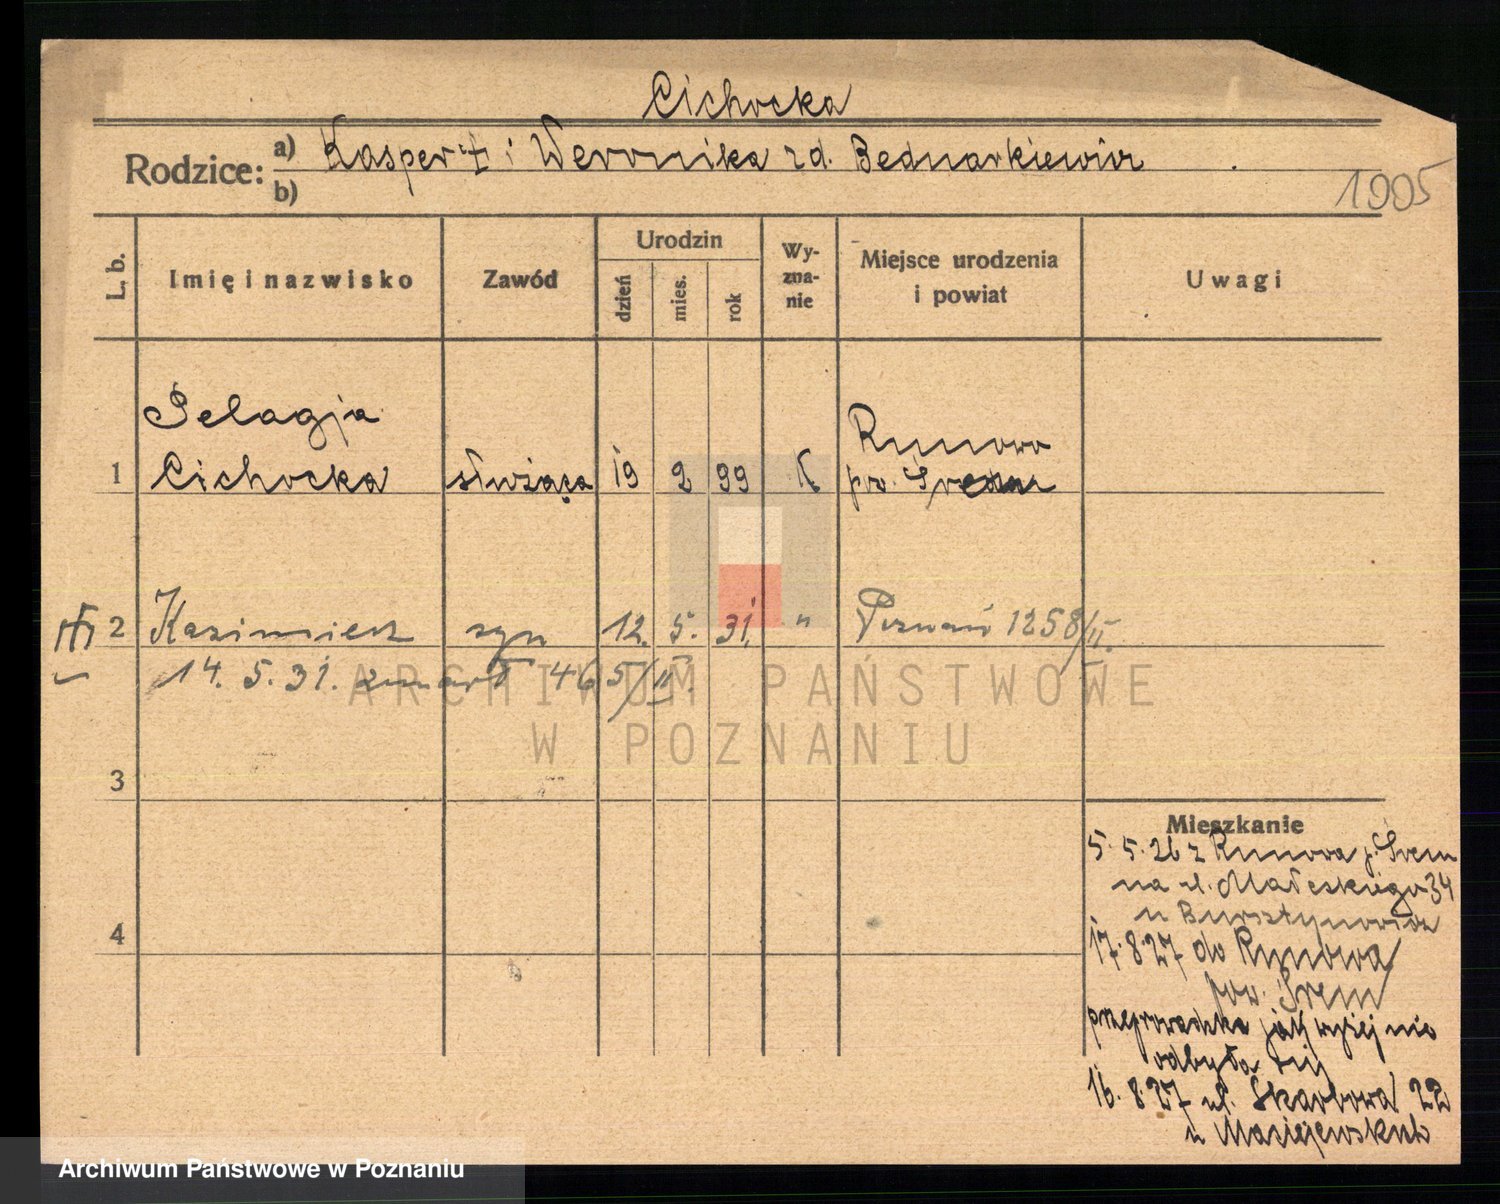 Cichocka
Rodzice: a) Kasper † i Weronika zd. Bednarkiewicz
b)
1905
L. b.
Imię i nazwisko
Zawód
Urodzin
dzień
mies.
rok
Wy-
zna-
nie
Miejsce urodzenia
i powiat
Uwagi
1 Pelagja
Cichocka służąca 19 2 99 K Runowo
pow. Śrem
2 Kazimierz syn 12. 5. 31. " Poznań 1258/II.
14. 5. 31. zmarł 465/II.
3
4
Mieszkanie
5. 5. 26 z Runowa p. Śrem
na ul. Małeckiego 34
u Bursztynowicz
17. 8. 27 do Runowa
pow. Śrem
przeprowadzka jak wyżej nie
odbyła się
16. 8. 27 ul. Skarbowa 22
u Maciejewskich
ARCHIWUM PAŃSTWOWE
W POZNANIU
Archiwum Państwowe w Poznaniu